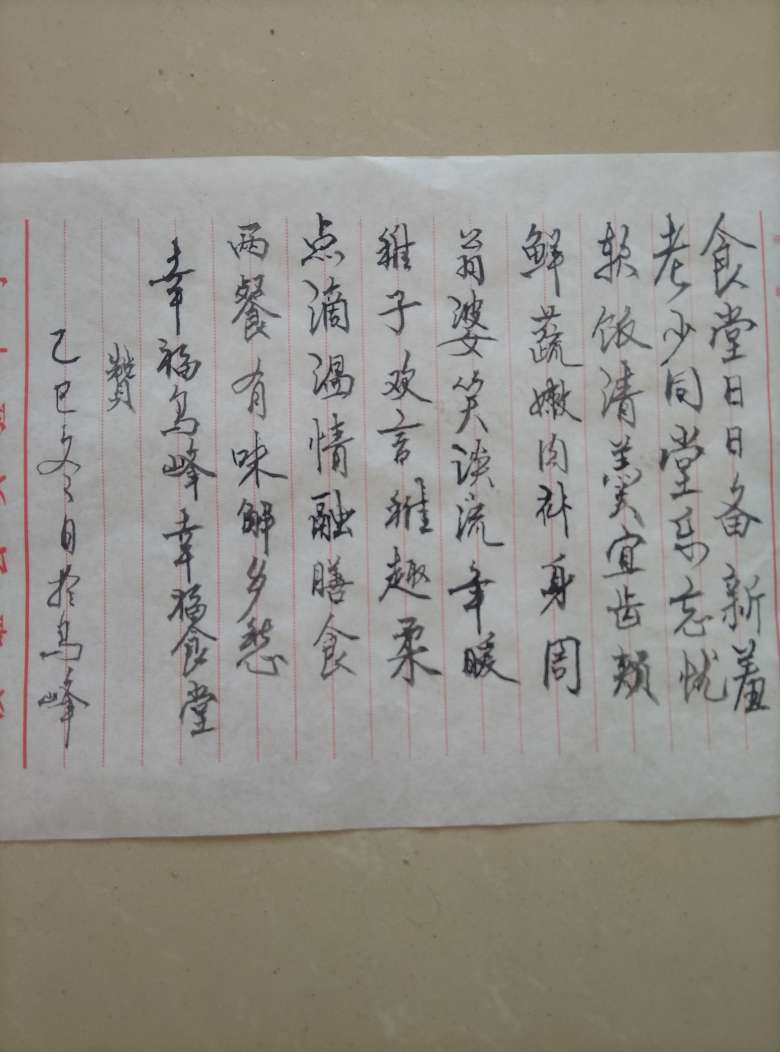 食堂日日备新羞
老少同堂乐忘忧
软饭清羹宜齿颊
鲜蔬嫩肉补身周
翁婆笑谈流年暖
稚子欢言稚趣柔
点滴温情融膳食
两餐有味解乡愁
幸福鸟峰幸福食堂
赞
乙巳冬日于鸟峰